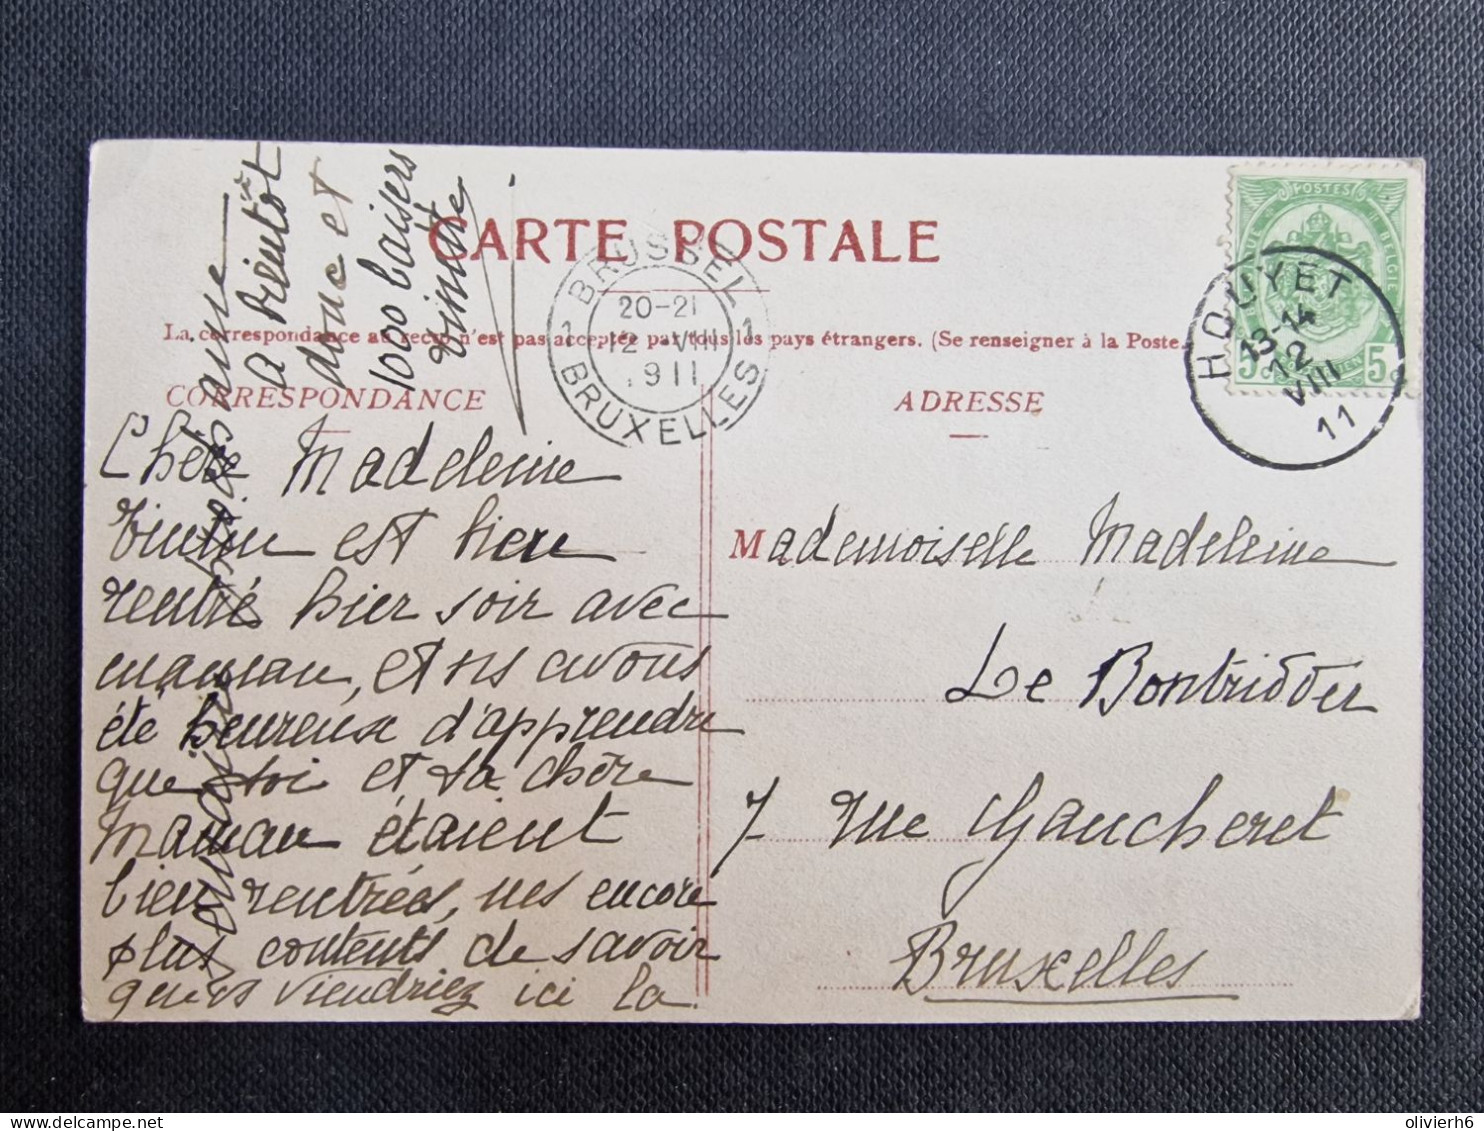 CARTE POSTALE
La correspondance au recto n'est pas acceptée par tous les pays étrangers. (Se renseigner à la Poste.
CORRESPONDANCE
ADRESSE
BRUSSEL
1 20-21 1
12 VIII
1911
BRUXELLES
POSTES
BELGIQUE BELGIE
5c 5c
HOUYET
13-14
12
VIII
11
Chère Madeleine
Tintin est bien
rentré hier soir avec
maman, et ns avons
été heureux d'apprendre
que toi et ta chère
Maman étaient
bien rentrées, mes encore
plus contents de savoir
que vs viendriez ici la
semaine
A bientôt
donc et
1000 baisers
Mademoiselle Madeleine
Le Bontridder
7 rue Gaucheret
Bruxelles
olivierh6